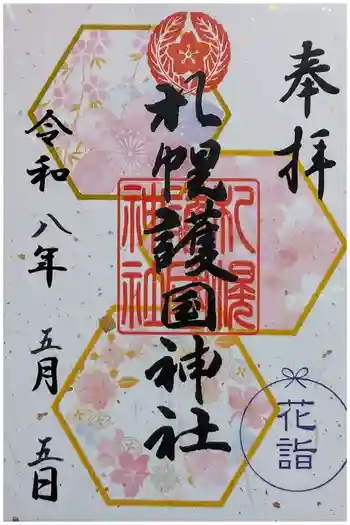 奉拝
札幌護国神社
札幌護国神社
令和八年五月五日
花詣